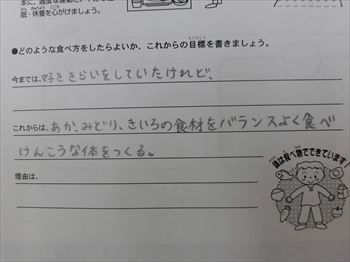 眠・休養を心がけましょう。
●どのような食べ方をしたらよいか、これからの目標を書きましょう。
今までは、好ききらいをしていたけれど、
これからは、あか、みどり、きいろの食材をバランスよく食べ
けんこうな体をつくる。
理由は、
体は食べ物でできています!